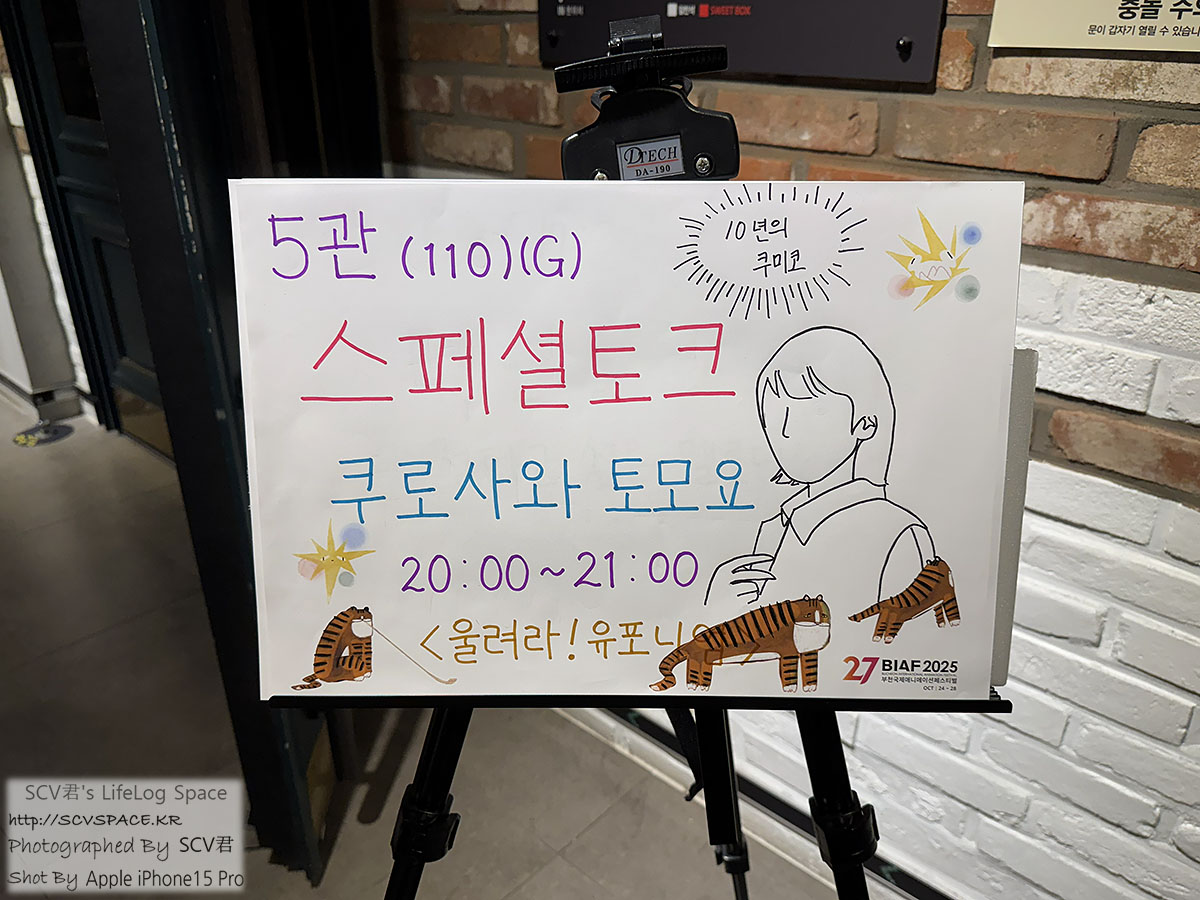 SWEET BOX
충돌 주의
문이 갑자기 열릴 수 있습니
DTECH
DA-190
5관 (110)(G)
10년의
쿠미코
스페셜토크
쿠로사와 토모요
20:00~21:00
<울려라! 유포니
27 BIAF2025
BUCHEON INTERNATIONAL ANIMATION FESTIVAL
부천국제애니메이션페스티벌
OCT : 24 - 28
SCV君's LifeLog Space
http://SCVSPACE.KR
Photographed By SCV君
Shot By Apple iPhone15 Pro